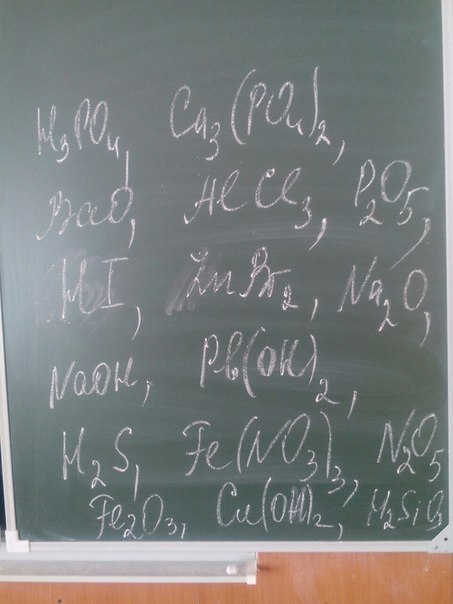 H₃PO₄, Ca₃(PO₄)₂,
BaO, AlCl₃, P₂O₅,
HI, ZnBr₂, Na₂O,
NaOH, Pb(OH)₂,
H₂S, Fe(NO₃)₃, N₂O₅
Fe₂O₃, Cu(OH)₂, H₂SiO₃